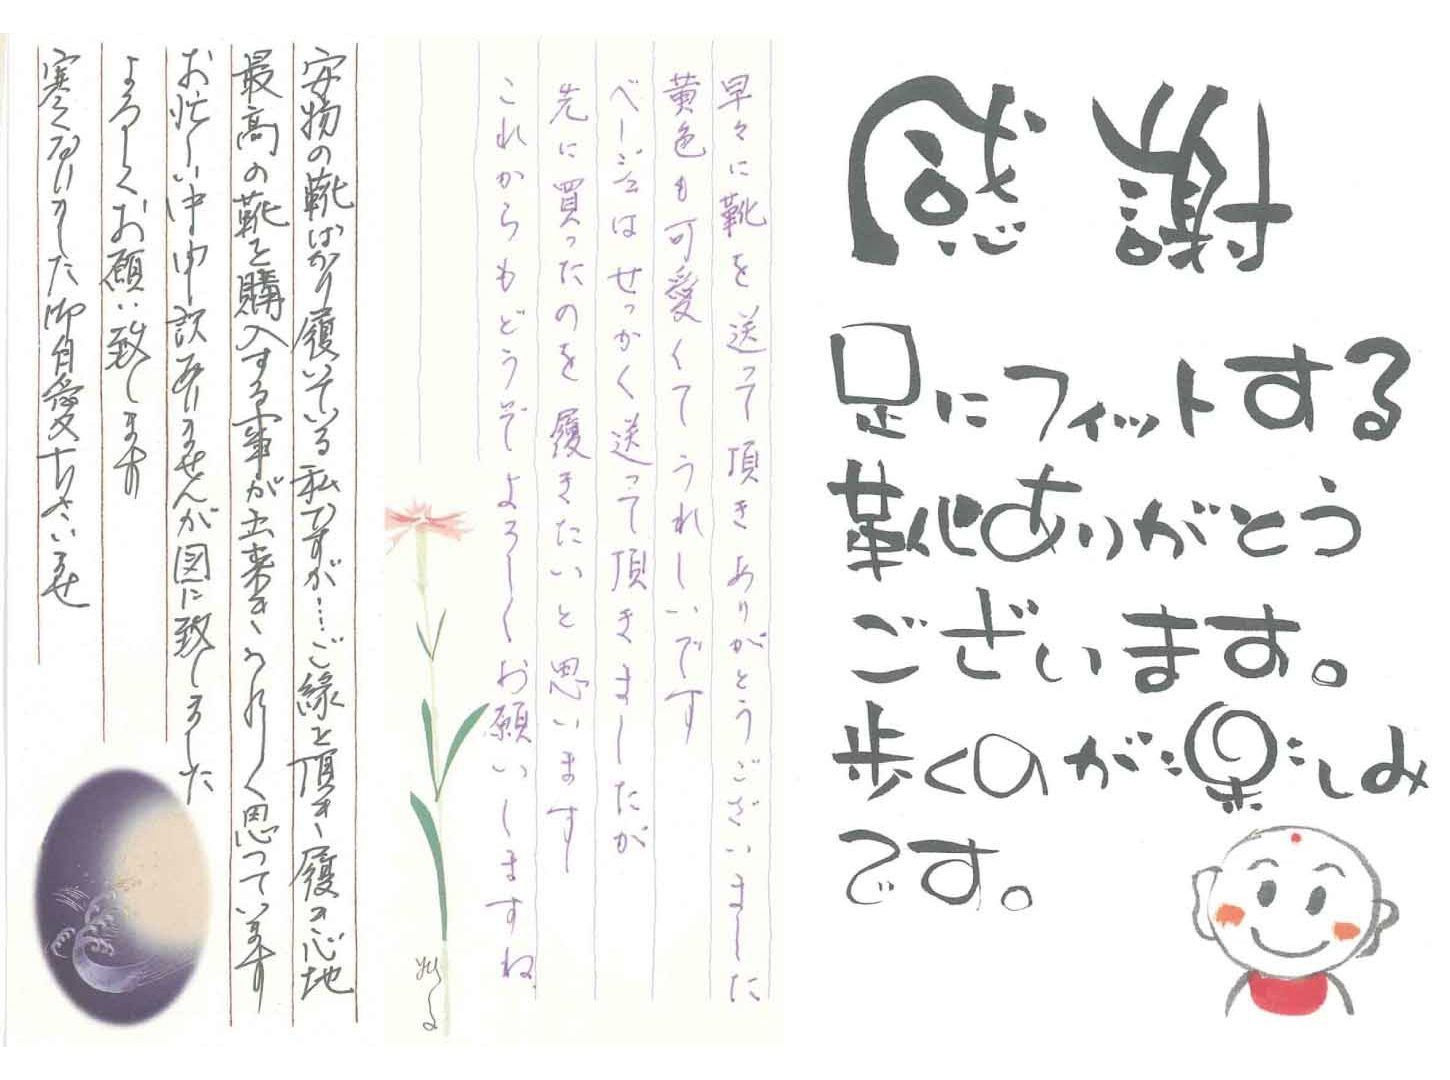 感謝
足にフィットする
靴ありがとう
ございます。
歩くのが楽しみ
です。
早々に靴を送って頂きありがとうございました
黄色も可愛くてうれしいです
ベージュはせっかく送って頂きましたが
先に買ったのを履きたいと思います
これからもどうぞよろしくお願いしますね
安物の靴ばかり履いている私ですが…ご縁を頂き、履き心地
最高の靴を購入する事が出来き、うれしく思っています
お忙しい中申し訳ありませんが図に致しました
よろしくお願い致します
寒くなりました御自愛ださいませ